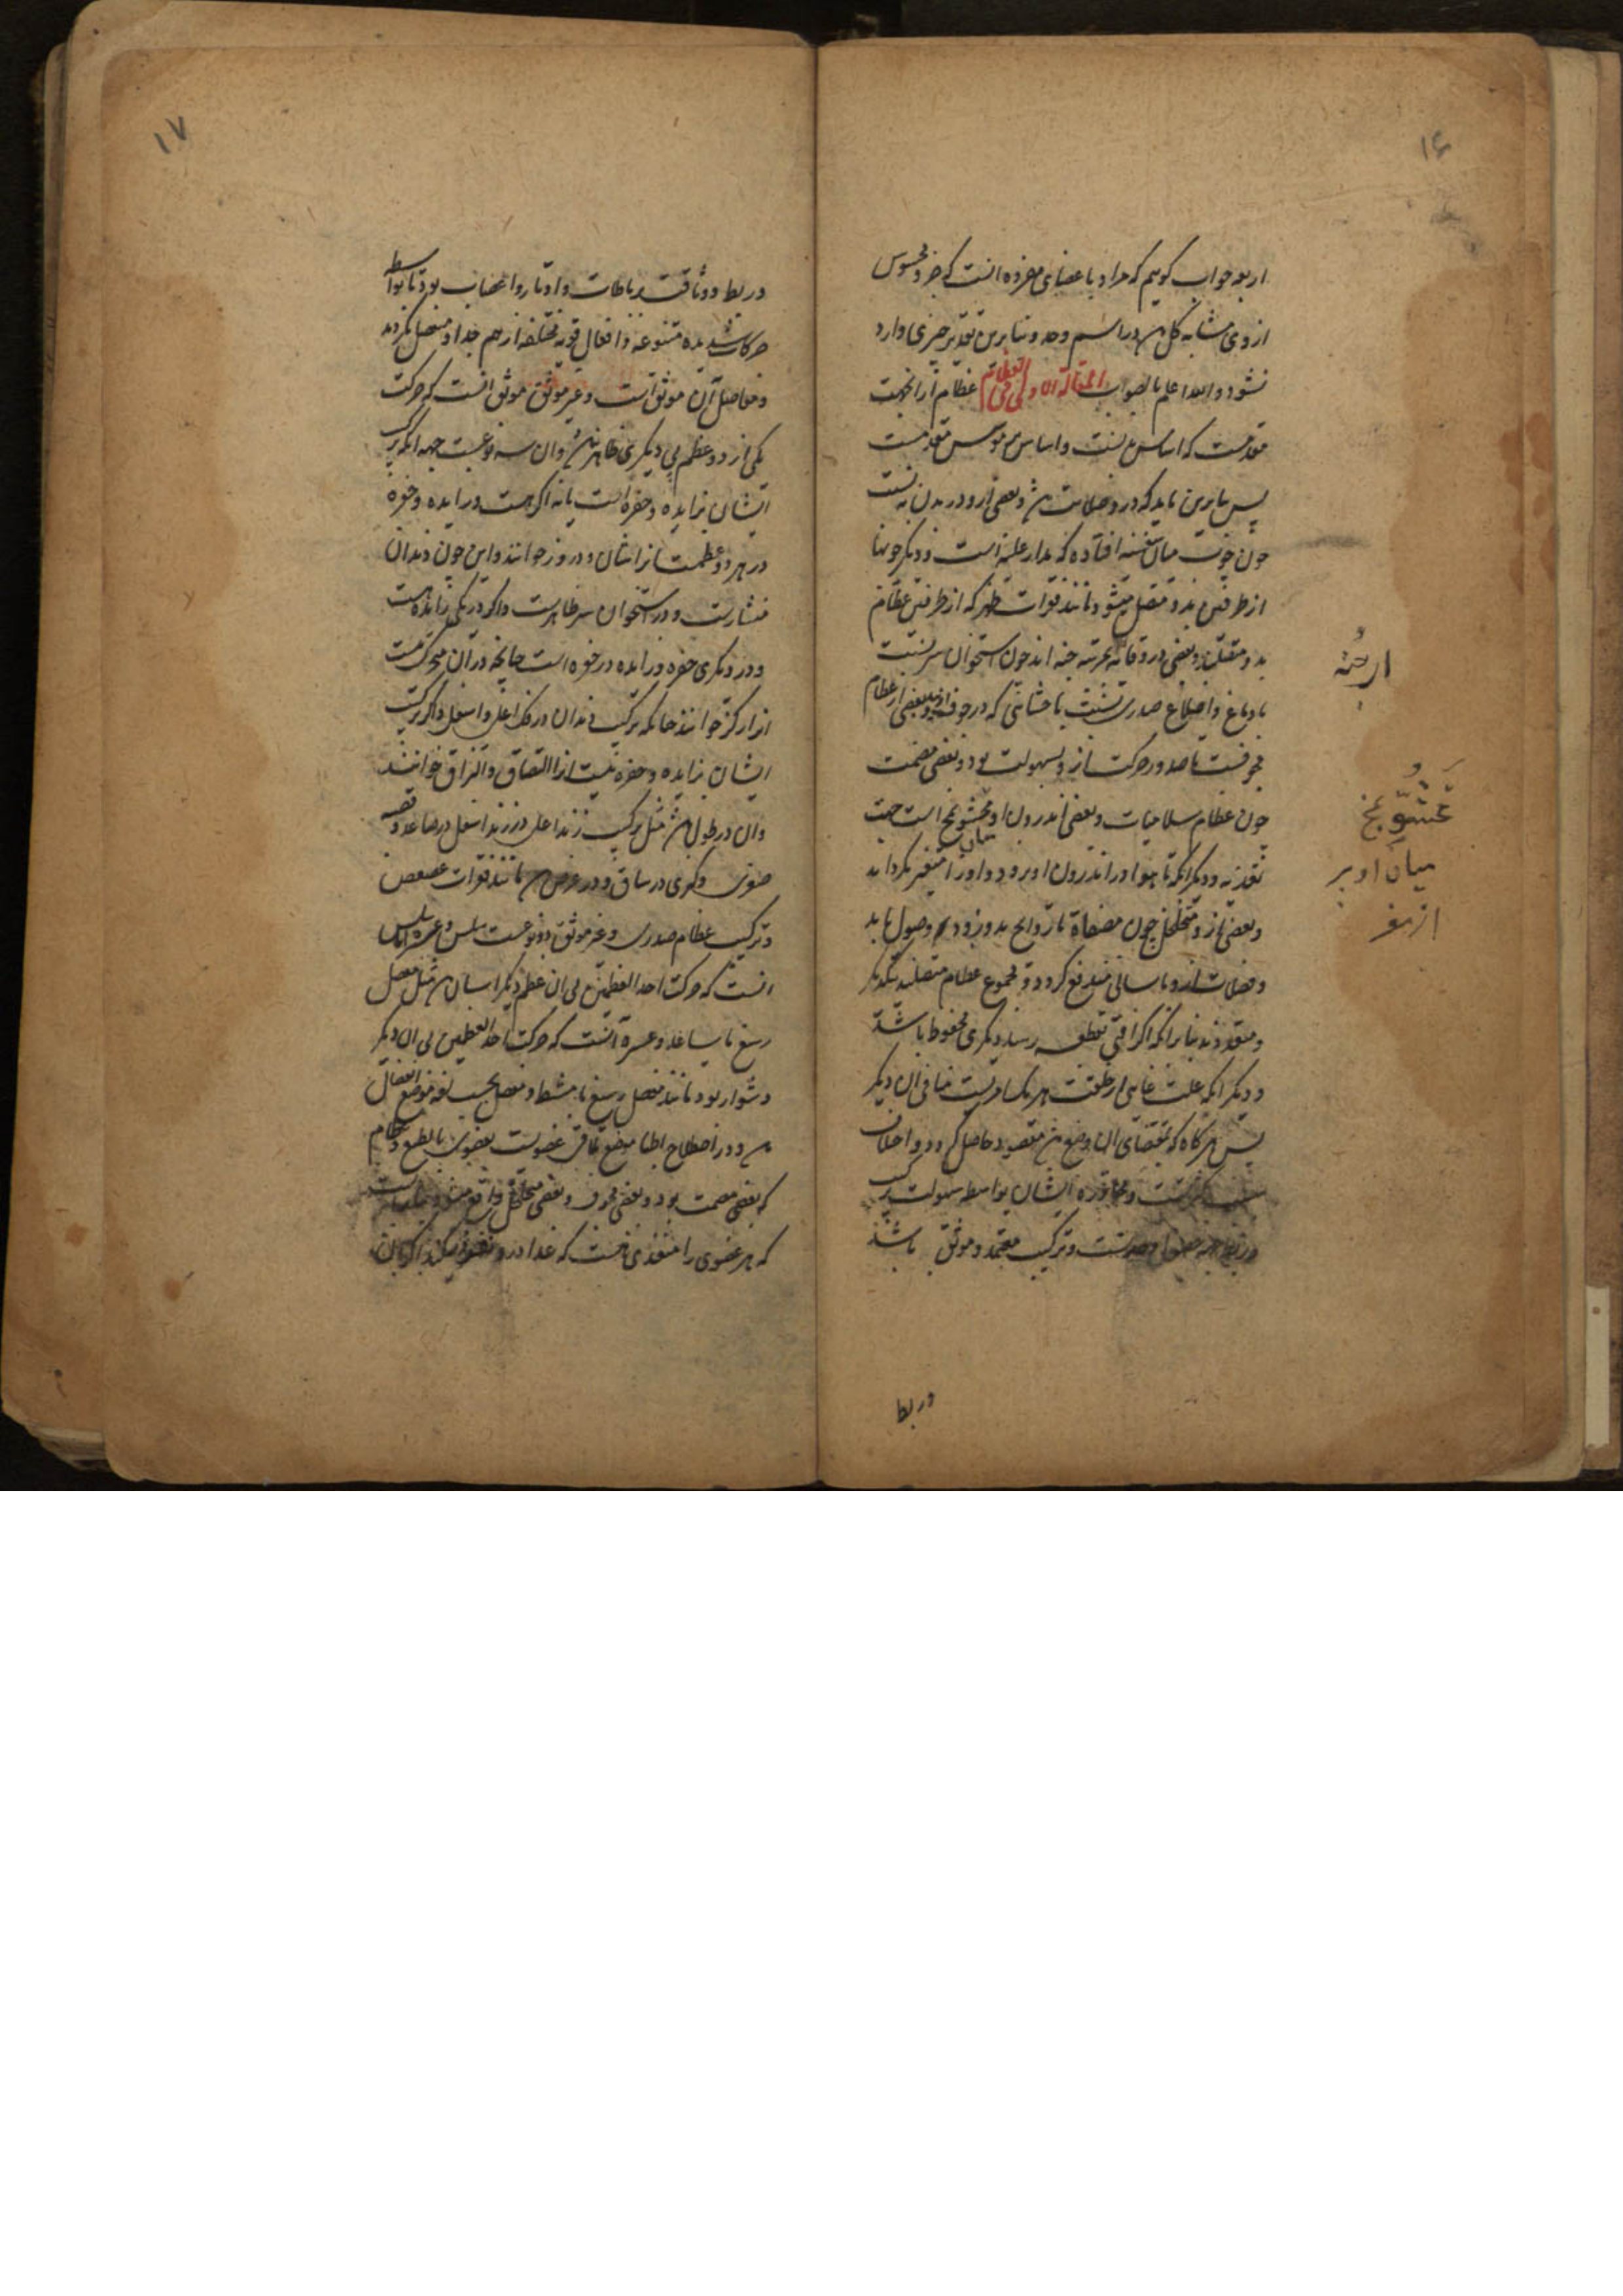 ۱۶
اربعه جواب کویم که مراد باعضای مفرده انست که جزو محسوس
ازوی مشابه کل در اسم وحد و بنابرین تقدیر چیزی وارد
نشود والله اعلم بالصواب المقالة الاولی فی العظام عظام را ازانجهت
مقدمست که اساس بدنست و اساس بر موسس مقدمست
پس بنابرین باید که درو صلابت و بعضی ازو در بدن به نسبت
چون چوب میان سفینه افتاده که مدار علیه است و دیکر چوبها
از طرفین بدو متصل میشود مانند فقرات ظهر که از طرفین عظام
بدو متصلند و بعضی در وقایه بمرتبه جنه اند چون استخوان سر نسبت
با دماغ و اضلاع صدری نسبت با احشائی که در جوف و بعضی از عظام
مجوفست تا صدور حرکت ازو بسهولت بود و بعضی مصمت
چون عظام سلامیات و بعضی اندرون او محشو بمخ است جهت
تغذیه و دیکر انکه تا هوا در اندرون او نرود و او را متغیر نکرداند
و بعضی ازو متخلخل چون مصفاة تا روایح بدو زود وصول یابد
و فضلات ازو باسانی مندفع کردد و مجموع عظام متصلند بیکدیکر
و متعددند بنابر انکه اکر افتی بقطعه رسد دیکری محفوظ باشد
و دیکر انکه علت غایی از خلقت هر یک امریست منافی ان دیکر
پس هر کاه که بمقتضای ان وضع مقصود حاصل کردد و اختلاف
سبب کثرتست و مجاوره ایشان بواسطه سهولت ترکیب
و ترکیب معتمد و موثق باشد
در ربط
ارجُنه
مَحْشُوّ بمخ
میان او پر
از مغز
۱۷
در ربط و وثاقت برباطات و اوتار و اعصاب بود تا بواسطه
حرکات شدیده متنوعه و افعال قویه مختلفه از هم جدا و منفصل نکردند
و مفاصل آن موثق است و غیر موثق موثق انست که حرکت
یکی از دو عظم بی دیکری ظاهر نشود و ان سه نوعست جهه انکه ترکیب
ایشان بزایده و حفره است یا نه اکر هست و زایده و حفره
در هر دو عظمست انرا شان و دروز خوانند و این چون دندان
منشارست و در استخوان سر ظاهرست و اکر در یکی زایده است
و در دیکری حفره و زایده در حفره است چنانچه دران متحرک نیست
انرا رکز خوانند چنانکه ترکیب دندان در فک اعلی و اسفل و اکر ترکیب
ایشان بزایده و حفره نیست انرا التصاق و التزاق خوانند
و ان در طول مثل ترکیب زند اعلی در زند اسفل در ساعد و قصبه
صغری و کبری در ساق و در عرض مانند فقرات عصعص
و ترکیب عظام صدری و غیر موثق دو نوعست سلس و عسره سلس
انست که حرکت احد العظمین بی ان عظم دیکر اسان مثل مفصل
رسغ با ساعد و عسره آنست که حرکت احد العظمین بی ان دیکر
دشوار بود مانند مفصل رسغ با مشط و مفصل بحسب لغه موضع انفصال
و در اصطلاح اطبا موضع تلاقی عضویست بعضوی بالطبع و عظام
که بعضی مصمت بود و بعضی مجوف و بعضی متخلخل واقع
که هر عضوی را منفذی هست که غذا درو نفوذ